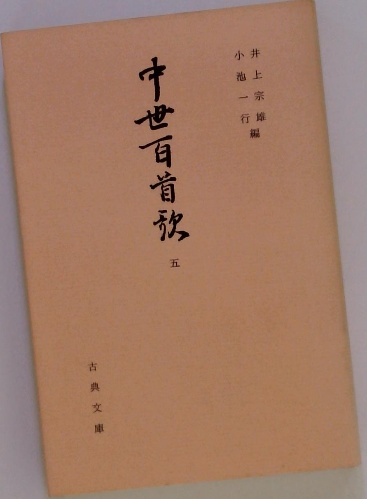 井上宗雄
小池一行編
中世百首歌
五
古典文庫